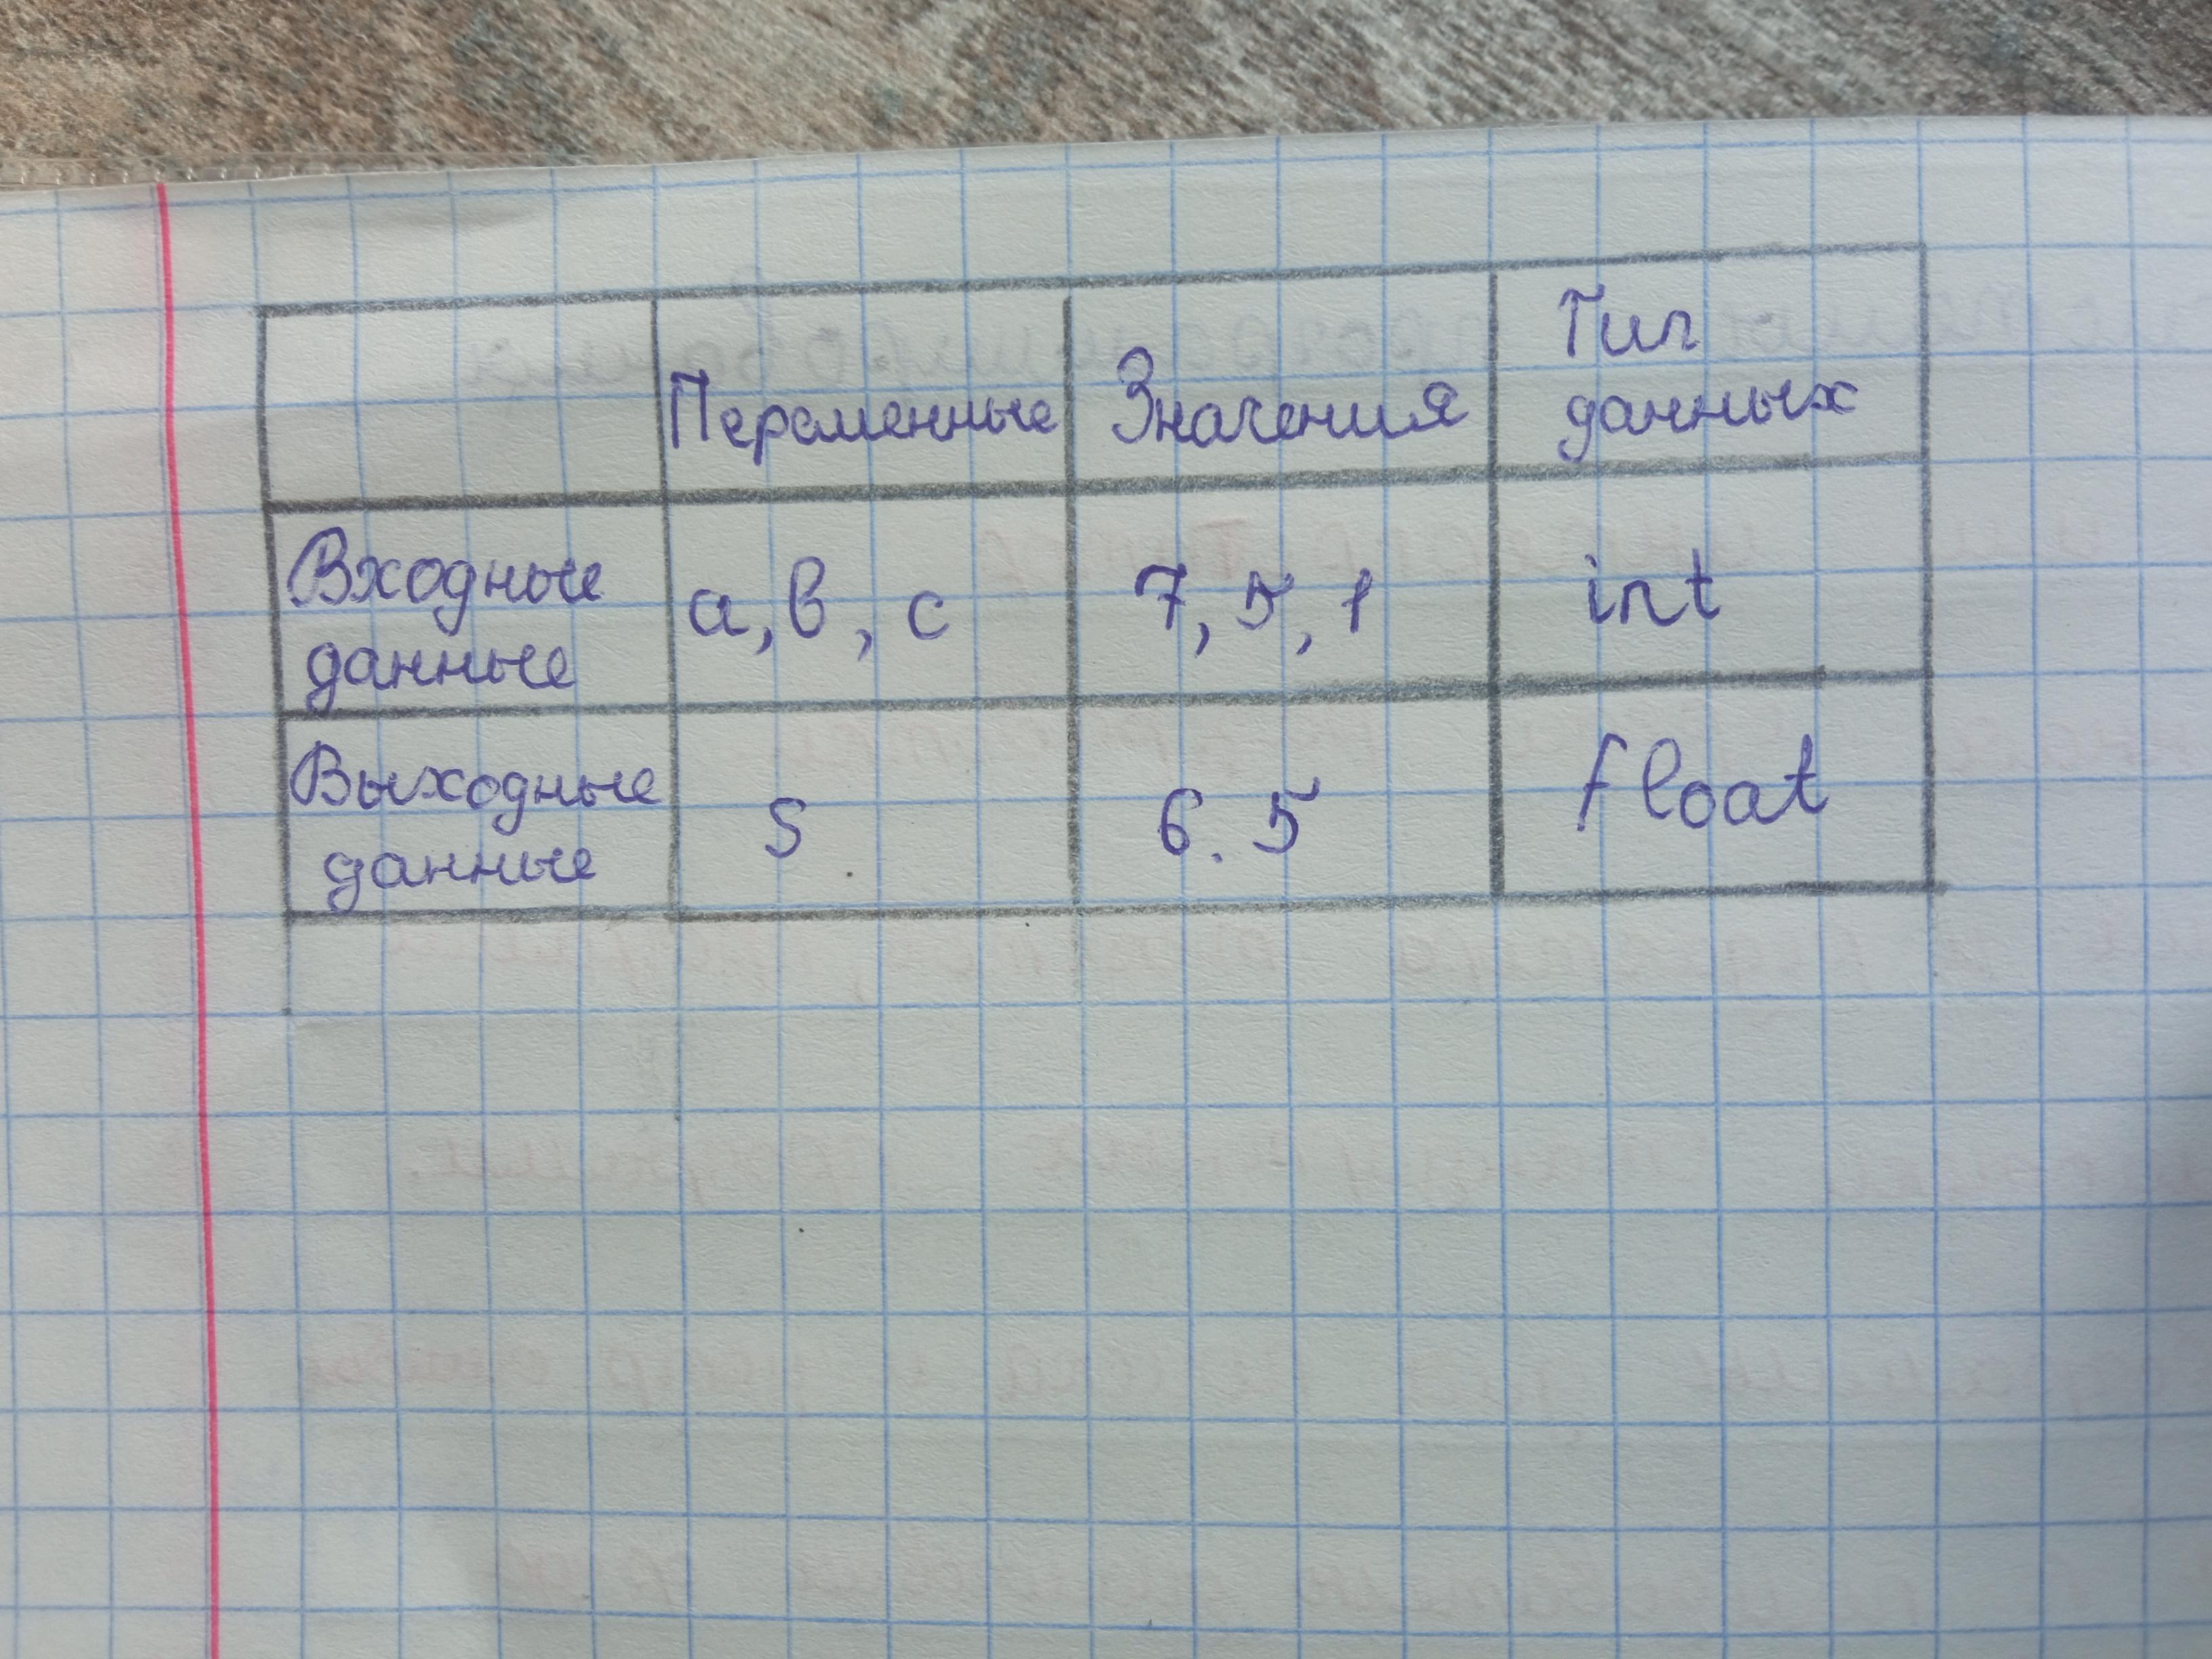 Переменные Значения Тип данных
Входные данные а, в, с 7, 5, 1 int
Выходные данные S 6.5 float